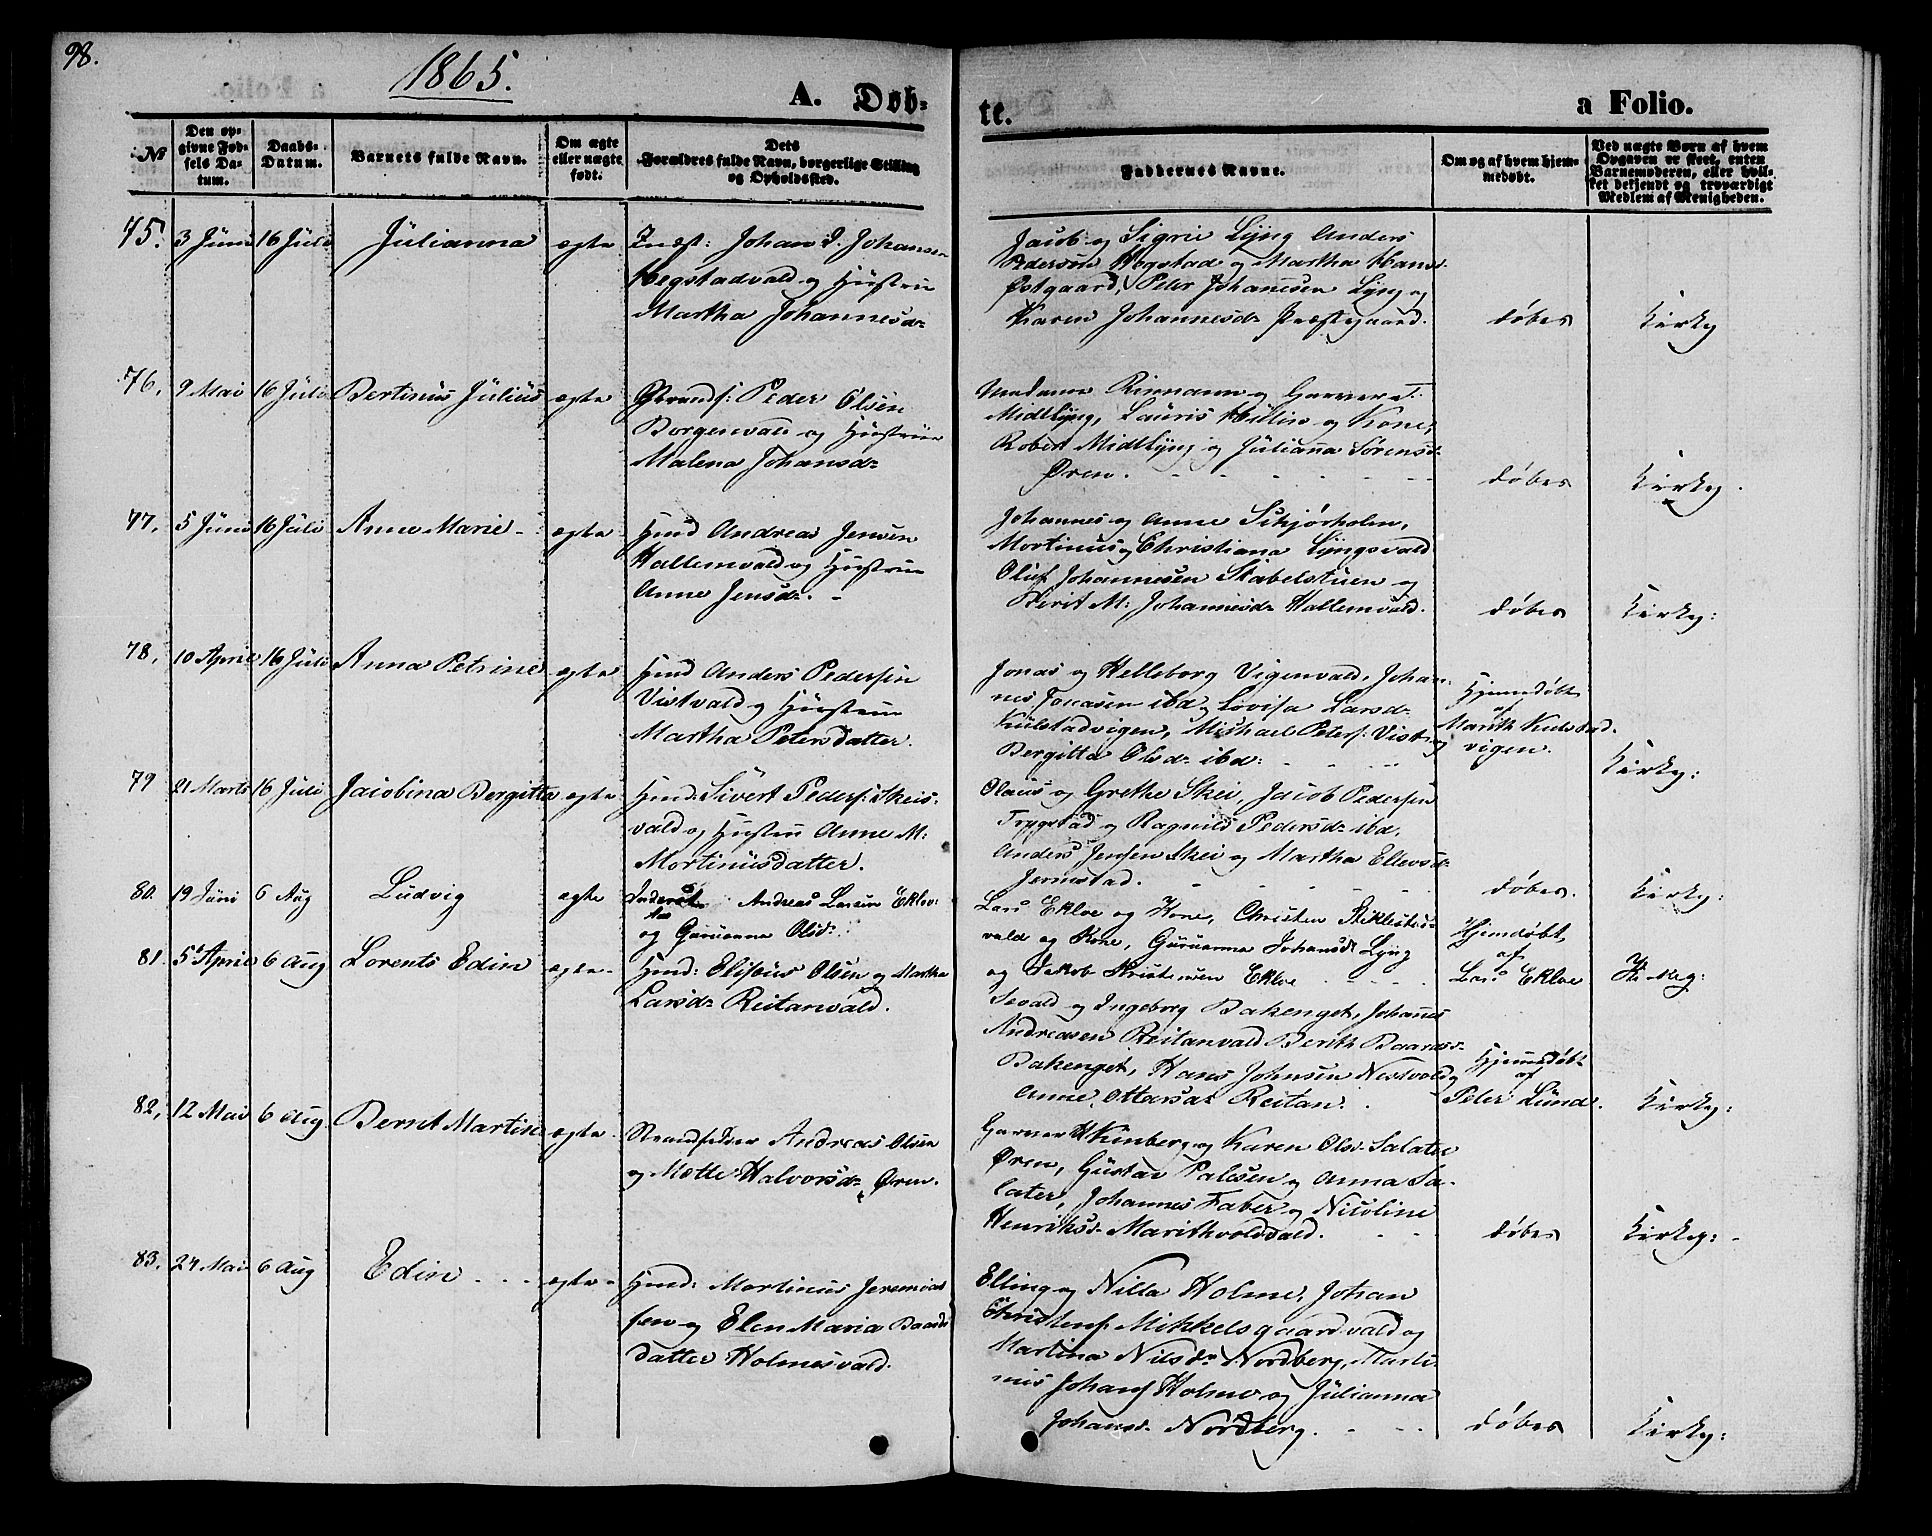 98.
1865.
A. Døb-
te.
a Folio.
No
Den op-
givne Fød-
sels Da-
tum.
Daabs-
Datum.
Barnets fulde Navn.
Om ægte
eller uægte
født.
Dets
Forældres fulde Navn, borgerlige Stilling
og Opholdssted.
Faddernes Navne.
Om og af hvem hjem-
medøbt.
Ved uægte Børn af hvem
Opgaven er skeet, enten
Barnemoderen, eller hvil-
ket bekjendt og troværdigt
Medlem af Menigheden.
75. 3 Juni 16 Juli Julianna ægte Johan J. Johans
Hegstadvald og Hustrue
Martha Johannesd:
Jacob og Sigrie Lyng Anders
Pedersen Hegstad og Martha Hans
Østgaard, Peter Johanesen Lyng og
Karen Johannesd: Præstegaard.
døbes
Kirkeg
76. 9 Mai 16 Juli Bertinus Julius ægte Strandf: Peder Olsen
Borgenvald og Hustrue
Malena Johansd:
Madame og Garver
Midtlyng, Lauris og Kone,
Robert Midtlyng og Juliana Sørensd:
Øren.
døbes
Kirkeg.
77. 5 Juni 16 Juli Anne Marie ægte Hmd Andreas Jensen
Hallemvald og Hustrue
Anne Jensd:
Johannes og Anne Skjørholm,
Mortinus og Christiana Lyngsvald
Oluf Johannesen Stabelstuen og
Berit M: Johannesd: Hallemvald.
døbes
Kirkeg:
78. 10 April 16 Juli Anna Petrine ægte Hmd Anders Pedersen
Vistvald og Hustrue
Martha Petersdatter.
Jonas og Helleborg Vigenvald, Johan-
nes Jonasen ibd og Lovisa Larsd:
Kulstadvigen, Michael Peters: Vist og
Bergitta Olsd: ibd:
Hjemmdøbt
af
Marith Kulstad
vigen.
Kirkeg:
79 21 Marts 16 Juli Jacobina Bergitta ægte Hmd: Sivert Peders: Skeis-
vald og Hustru Anne M:
Mortinusdatter.
Olaus og Grethe Skei, Jacob Pedersen
Trygstad og Ragnild Pedersd: ibd,
Anders Jensen Skei og Martha Ellevsd:
Jermstad.
døbes.
Kirkeg:
80. 19 Juni 6 Aug Ludvig ægte Inderst Andreas Larsen Ekloe
og Guruanna Olsd:
Lars Ekloe og Kone, Christen Stiklestad-
vald og Kone, Guruanna Johansd: Lyng
og Jakob Kristensen Ekloe
Hjemdøbt
af
Lars Ekloe
Kirkeg:
81. 5 April 6 Aug Lorents Edin ægte Hmd: Elisæus Olsen og Martha
Larsd: Reitanvald.
Sevald og Ingeborg Bakenget, Johannes
Andreasen Reitanvald Berith Baardsd:
Bakenget, Hans Johnsen Nestvold og
Anne Ottarsd: Reitan.
Hjemmdøbt
af
Peter Lund.
Kirkeg:
82. 12 Mai 6 Aug Bernt Martin ægte Strandsidder Andreas Olsen
og Mette Halvorsd: Øren.
Garver og Karen Olsd. Salater
Øren, Gustav Palesen og Anna Sa-
later, Johannes Faber og Nicoline
Henriksd. Marithvoldvald.
døbes
Kirkeg:
83. 24 Mai 6 Aug Edin ægte Hmd: Martinus Jeremias
sen og Elen Maria Baards
datter Holmesvald.
Elling og Nilla Holme, Johan
Christens: Mikkelsgaardvald og
Martina Nilsd: Nordberg, Marti-
nus Johans Holme og Julianna
Johansd: Nordberg.
døbes
Kirkeg: